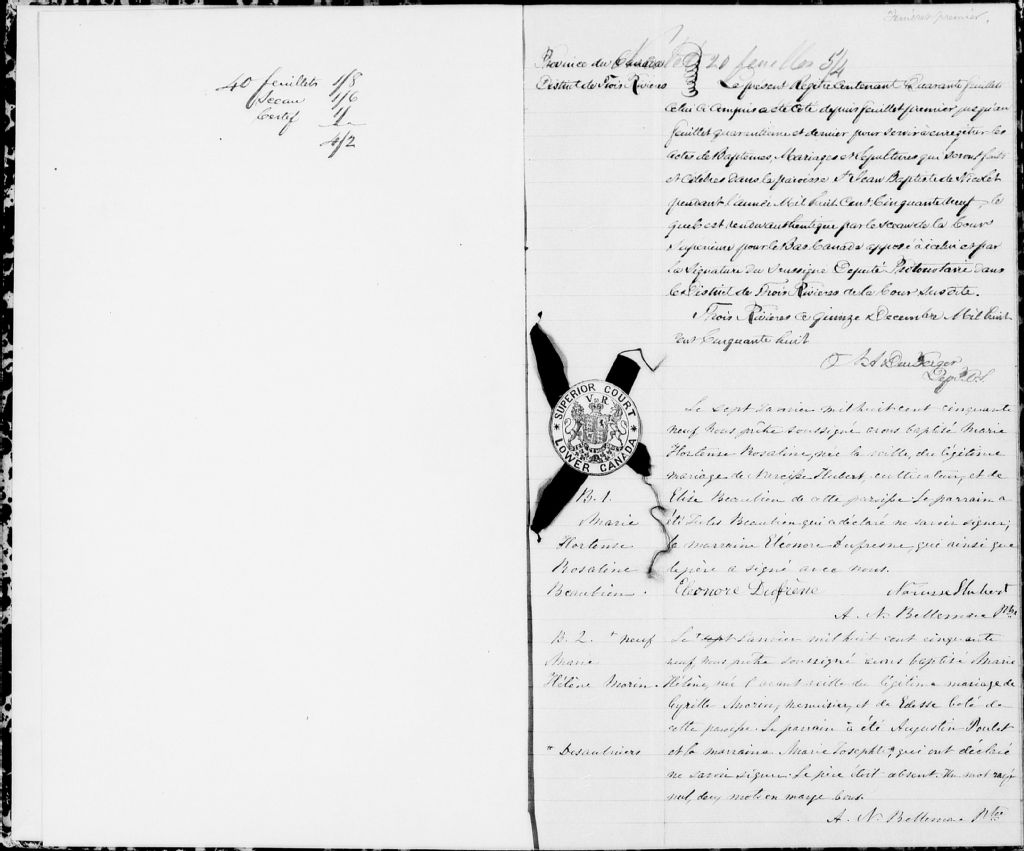 40 feuillets 1/8
Sceau 1/6
Certif 1/-
4/2
Feuillet premier.
20 feuilles 54
Province du Canada
District de Trois Rivieres
Le présent Régitre contenant Quarante feuillets
celui ci compris a été coté depuis feuillet premier jusqu'au
feuillet quarantieme et dernier pour servir à enregitrer les
actes de Baptêmes, Mariages et Sépultures qui seront faits
et célébrés dans la paroisse St Jean Baptiste de Nicolet
pendant l'année Mil huit Cent Cinquante Neuf, le
quel est rendu authentique par le sceau de la Cour
Supérieure pour le Bas Canada apposé à icelui et par
la Signature du Soussigné Député Protonotaire dans
le District de Trois Rivieres de la Cour susdite.
Trois Rivieres ce quinze Decembre Mil huit
cent Cinquante huit
Dep. P.S.
SUPERIOR COURT
V R
LOWER CANADA
B. 1.
Marie
Hortense
Rosaline
Beaubien.
Le sept Janvier mil huit cent cinquante
neuf Nous prêtre soussigné avons baptisé Marie
Hortense Rosaline, née la veille, du légitime
mariage de Narcisse Hubert, cultivateur, et de
Elise Beaubien de cette paroisse. Le parrain a
été Jules Beaubien qui a déclaré ne savoir signer;
la marraine Eléonore Dufresne, qui ainsi que
le père a signé avec nous.
Eléonore Dufrène Narcisse Hubert
A. N. Bellemare Ptre
B. 2. + neuf
Marie
Hélène Morin.
" Desaulniers
Le + sept Janvier mil huit cent cinquante
neuf, Nous prêtre soussigné avons baptisé Marie
Hélène, née l'avant veille du légitime mariage de
Cyrille Morin, menuisier, et de Edesse Coté de
cette paroisse. Le parrain a été Augustin Poulet
et la marraine Marie Josephte " qui ont déclaré
ne savoir signer. Le père était absent. Un mot rayé
nul, deux mots en marge bons.
A. N. Bellemare Ptre